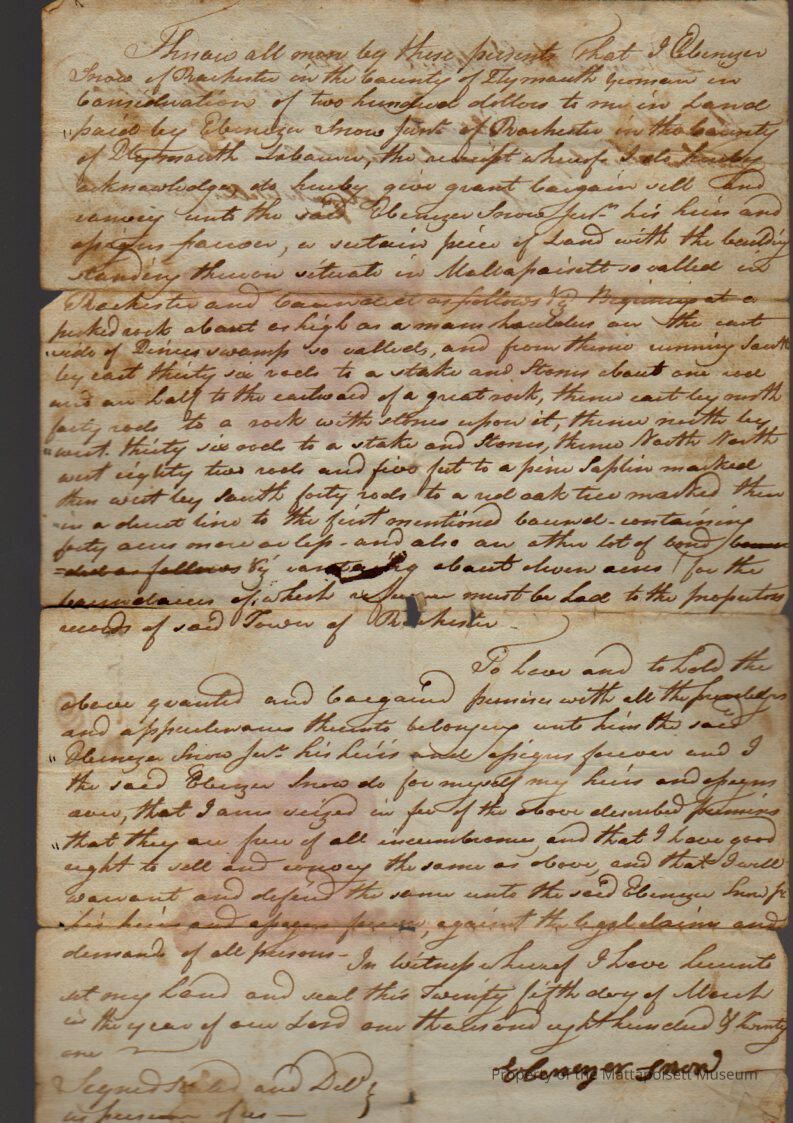 Know all men by these presents That I Ebenezer
Snow of Rochester in the County of Plymouth yeoman in
Consideration of two hundred dollars to me in hand
paid by Ebenezer Snow Junr of Rochester in the County
of Plymouth Labourer, the receipt whereof I do hereby
acknowledge do hereby give grant bargain sell and
convey unto the said Ebenezer Snow Junr his heirs and
assigns forever, a certain piece of Land with the building
standing thereon situate in Mattapoisett so called in
Rochester and bounded as follows Viz Begining at a
picked rock about as high as a mans shoulders on the east
side of Pines swamp so called, and from thence running South
by east thirty six rods to a stake and Stones about one rod
and an half to the eastward of a great rock, thence east by north
forty rods to a rock with stones upon it, thence north by
west thirty six rods to a stake and Stones, thence North North
west eighty two rods and five feet to a pine Saplin marked
then west by South forty rods to a red oak tree marked then
in a direct line to the first mentioned bound - containing
forty acres more or less - and also an other lot of
as follows Viz containing about eleven acres for the
boundaries of which reference must be had to the proprietors
records of said Town of Rochester -
To have and to hold the
above granted and bargained premises with all the priviledges
and appurtenances thereunto belonging unto him the said
Ebenezer Snow Junr his heirs and assigns forever and I
the said Ebenezer Snow do for myself my heirs and assigns
aver, that I am seized in fee of the above described premises
that they are free of all incumbrance, and that I have good
right to sell and convey the same as above, and that I will
warrant and defend the same unto the said Ebenezer Snow Jr
his heirs and assigns forever, against the legal claims and
demands of all persons - In witness whereof I have hereunto
set my hand and seal this Twenty fifth day of March
in the year of our Lord one thousand eight hundred & twenty
one
Signed Seald and Deld
in presence of us -
Ebenezer Snow
Property of the Mattapoisett Museum